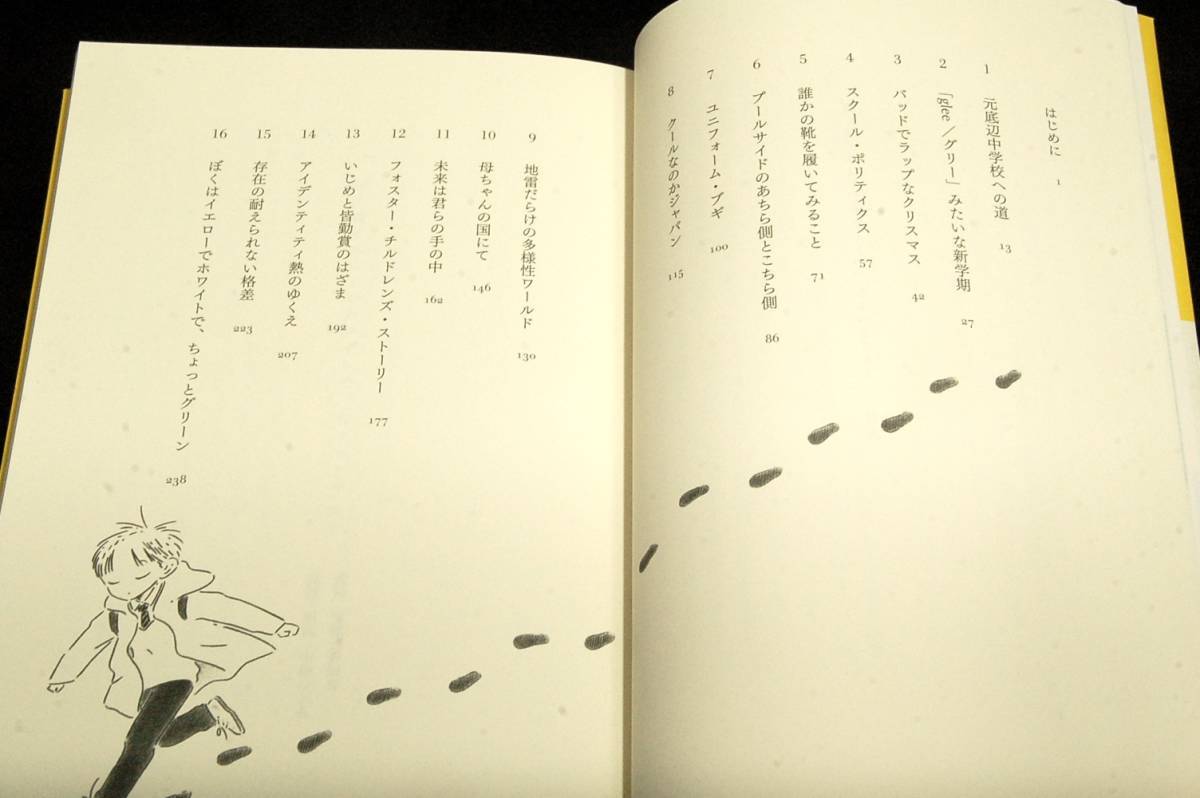 はじめに 1
1 元底辺中学校への道 13
2 「glee／グリー」みたいな新学期 27
3 バッドでラップなクリスマス 42
4 スクール・ポリティクス 57
5 誰かの靴を履いてみること 71
6 プールサイドのあちら側とこちら側 86
7 ユニフォーム・ブギ 100
8 クールなのかジャパン 115
9 地雷だらけの多様性ワールド 130
10 母ちゃんの国にて 146
11 未来は君らの手の中 162
12 フォスター・チルドレンズ・ストーリー 177
13 いじめと皆勤賞のはざま 192
14 アイデンティティ熱のゆくえ 207
15 存在の耐えられない格差 223
16 ぼくはイエローでホワイトで、ちょっとグリーン 238